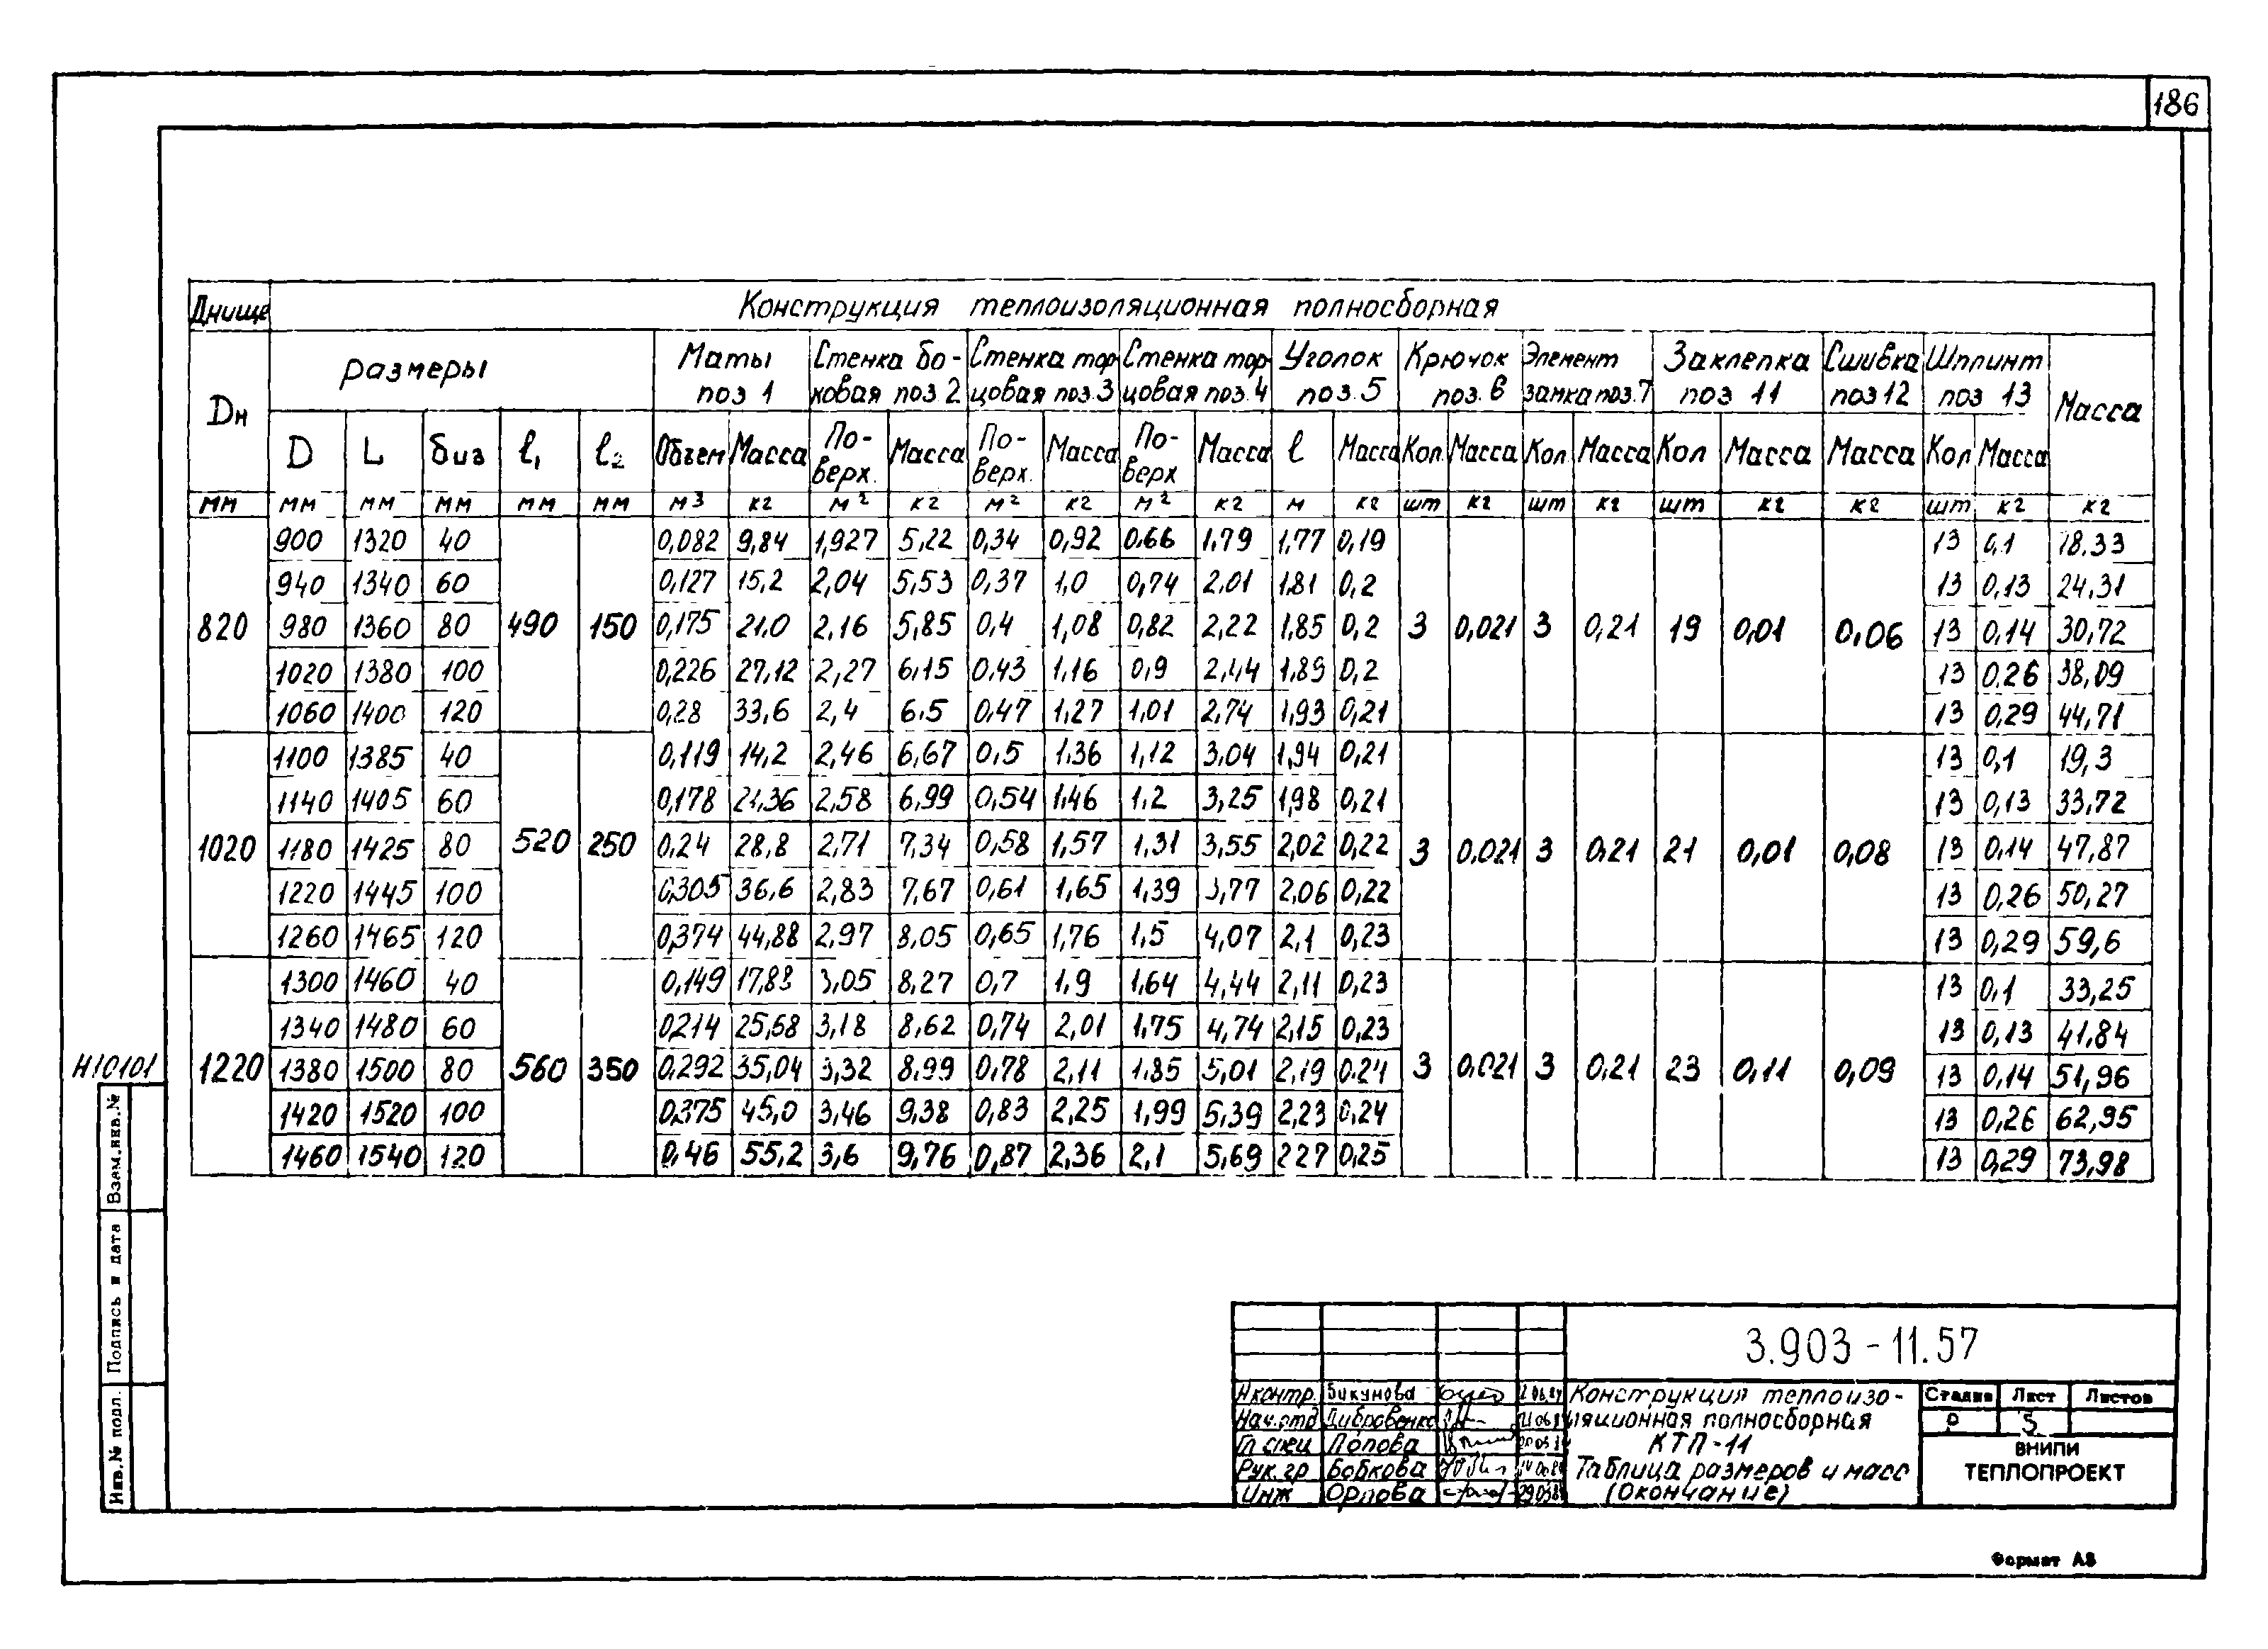 186
Днище Конструкция теплоизоляционная полносборная
Dн размеры Маты поз 1 Стенка боковая поз 2 Стенка торцовая поз.3 Стенка торцовая поз.4 Уголок поз.5 Крючок поз.6 Элемент замка поз.7 Заклепка поз 11 Сшивка поз 12 Шплинт поз 13 Масса
D L δиз ℓ₁ ℓ₂ Объем Масса Поверх. Масса Поверх. Масса Поверх Масса ℓ Масса Кол. Масса Кол. Масса Кол Масса Масса Кол Масса
мм мм мм мм мм мм м³ кг м² кг м² кг м² кг м кг шт кг шт кг шт кг кг шт кг кг
900 1320 40 0,082 9,84 1,927 5,22 0,34 0,92 0,66 1,79 1,77 0,19 13 0,1 18,33
940 1340 60 0,127 15,2 2,04 5,53 0,37 1,0 0,74 2,01 1,81 0,2 13 0,13 24,31
820 980 1360 80 490 150 0,175 21,0 2,16 5,85 0,4 1,08 0,82 2,22 1,85 0,2 3 0,021 3 0,21 19 0,01 0,06 13 0,14 30,72
1020 1380 100 0,226 27,12 2,27 6,15 0,43 1,16 0,9 2,44 1,89 0,2 13 0,26 38,09
1060 1400 120 0,28 33,6 2,4 6,5 0,47 1,27 1,01 2,74 1,93 0,21 13 0,29 44,71
1100 1385 40 0,119 14,2 2,46 6,67 0,5 1,36 1,12 3,04 1,94 0,21 13 0,1 19,3
1140 1405 60 0,178 21,36 2,58 6,99 0,54 1,46 1,2 3,25 1,98 0,21 13 0,13 33,72
1020 1180 1425 80 520 250 0,24 28,8 2,71 7,34 0,58 1,57 1,31 3,55 2,02 0,22 3 0,021 3 0,21 21 0,01 0,08 13 0,14 47,87
1220 1445 100 0,305 36,6 2,83 7,67 0,61 1,65 1,39 3,77 2,06 0,22 13 0,26 50,27
1260 1465 120 0,374 44,88 2,97 8,05 0,65 1,76 1,5 4,07 2,1 0,23 13 0,29 59,6
1300 1460 40 0,149 17,88 3,05 8,27 0,7 1,9 1,64 4,44 2,11 0,23 13 0,1 33,25
1340 1480 60 0,214 25,68 3,18 8,62 0,74 2,01 1,75 4,74 2,15 0,23 13 0,13 41,84
1220 1380 1500 80 560 350 0,292 35,04 3,32 8,99 0,78 2,11 1,85 5,01 2,19 0,24 3 0,021 3 0,21 23 0,11 0,09 13 0,14 51,96
1420 1520 100 0,375 45,0 3,46 9,38 0,83 2,25 1,99 5,39 2,23 0,24 13 0,26 62,95
1460 1540 120 0,46 55,2 3,6 9,76 0,87 2,36 2,1 5,69 2 27 0,25 13 0,29 73,98
Н10101
Взам.инв.№
Подпись и дата
Инв.№ подл.
3.903-11.57
Н контр. Бикунова
Нач.отд
Гл спец Попова
Рук.гр Бобкова
Инж Орлова
Конструкция теплоизо-
ляционная полносборная
КТП-11
Таблица размеров и масс
(Окончание)
Стадия Лист Листов
Р 5
ВНИПИ
ТЕПЛОПРОЕКТ
Формат А3